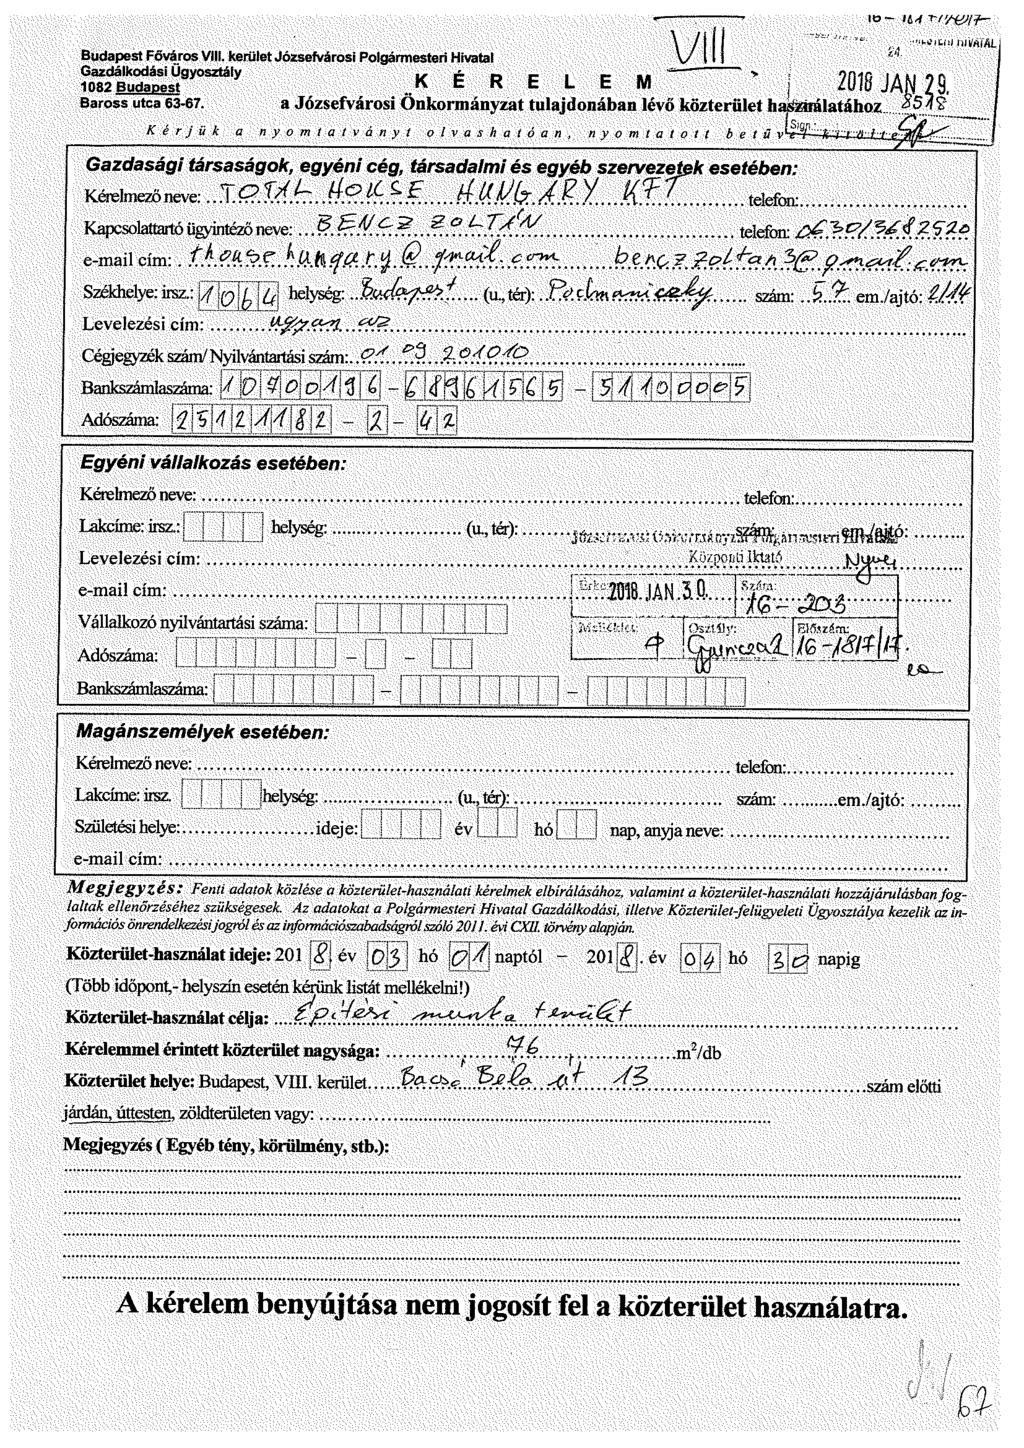 VIII
Budapest Főváros VIII. kerület Józsefvárosi Polgármesteri Hivatal
Gazdálkodási Ügyosztály
1082 Budapest
Baross utca 63-67.
K É R E L E M
a Józsefvárosi Önkormányzat tulajdonában lévő közterület használatához
2018 JAN 29.
8518
Kérjük a nyomtatványt olvashatóan, nyomtatott betűvel
Gazdasági társaságok, egyéni cég, társadalmi és egyéb szervezetek esetében:
Kérelmező neve: TOTAL HOUSE HUNGARY KFT telefon:
Kapcsolattartó ügyintéző neve: BENCZ ZOLTÁN telefon: 0630/3682520
e-mail cím: thousehungary@gmail.com benczzoltan3@gmail.com
Székhelye: irsz.: 1064 helység: Budapest (u., tér): Podmaniczky szám: 57 em./ajtó: 2/14
Levelezési cím: ugyan az
Cégjegyzék szám/ Nyilvántartási szám: 01 09 201010
Bankszámlaszáma: 10700196 – 68961565 – 51100005
Adószáma: 25121182 – 2 – 42
Egyéni vállalkozás esetében:
Kérelmező neve: telefon:
Lakcíme: irsz.: helység: (u., tér): szám: em./ajtó:
Levelezési cím:
Központi Iktató
e-mail cím:
2018 JAN 30. Szám: 16-203
Vállalkozó nyilvántartási száma:
Melléklet: Osztály: Előszám: 16-1817/17.
Adószáma: – –
Bankszámlaszáma: – –
Magánszemélyek esetében:
Kérelmező neve: telefon:
Lakcíme: irsz. helység: (u., tér): szám: em./ajtó:
Születési helye: ideje: év hó nap, anyja neve:
e-mail cím:
Megjegyzés: Fenti adatok közlése a közterület-használati kérelmek elbírálásához, valamint a közterület-használati hozzájárulásban fog-
laltak ellenőrzéséhez szükségesek. Az adatokat a Polgármesteri Hivatal Gazdálkodási, illetve Közterület-felügyeleti Ügyosztálya kezelik az in-
formációs önrendelkezési jogról és az információszabadságról szóló 2011. évi CXII. törvény alapján.
Közterület-használat ideje: 2018. év 03 hó 01 naptól – 2018. év 04 hó 30 napig
(Több időpont,- helyszín esetén kérünk listát mellékelni!)
Közterület-használat célja: Építési munka terület
Kérelemmel érintett közterület nagysága: 76 m²/db
Közterület helye: Budapest, VIII. kerület Bacsó Béla út 13 szám előtti
járdán, úttesten, zöldterületen vagy:
Megjegyzés ( Egyéb tény, körülmény, stb.):
A kérelem benyújtása nem jogosít fel a közterület használatra.
67